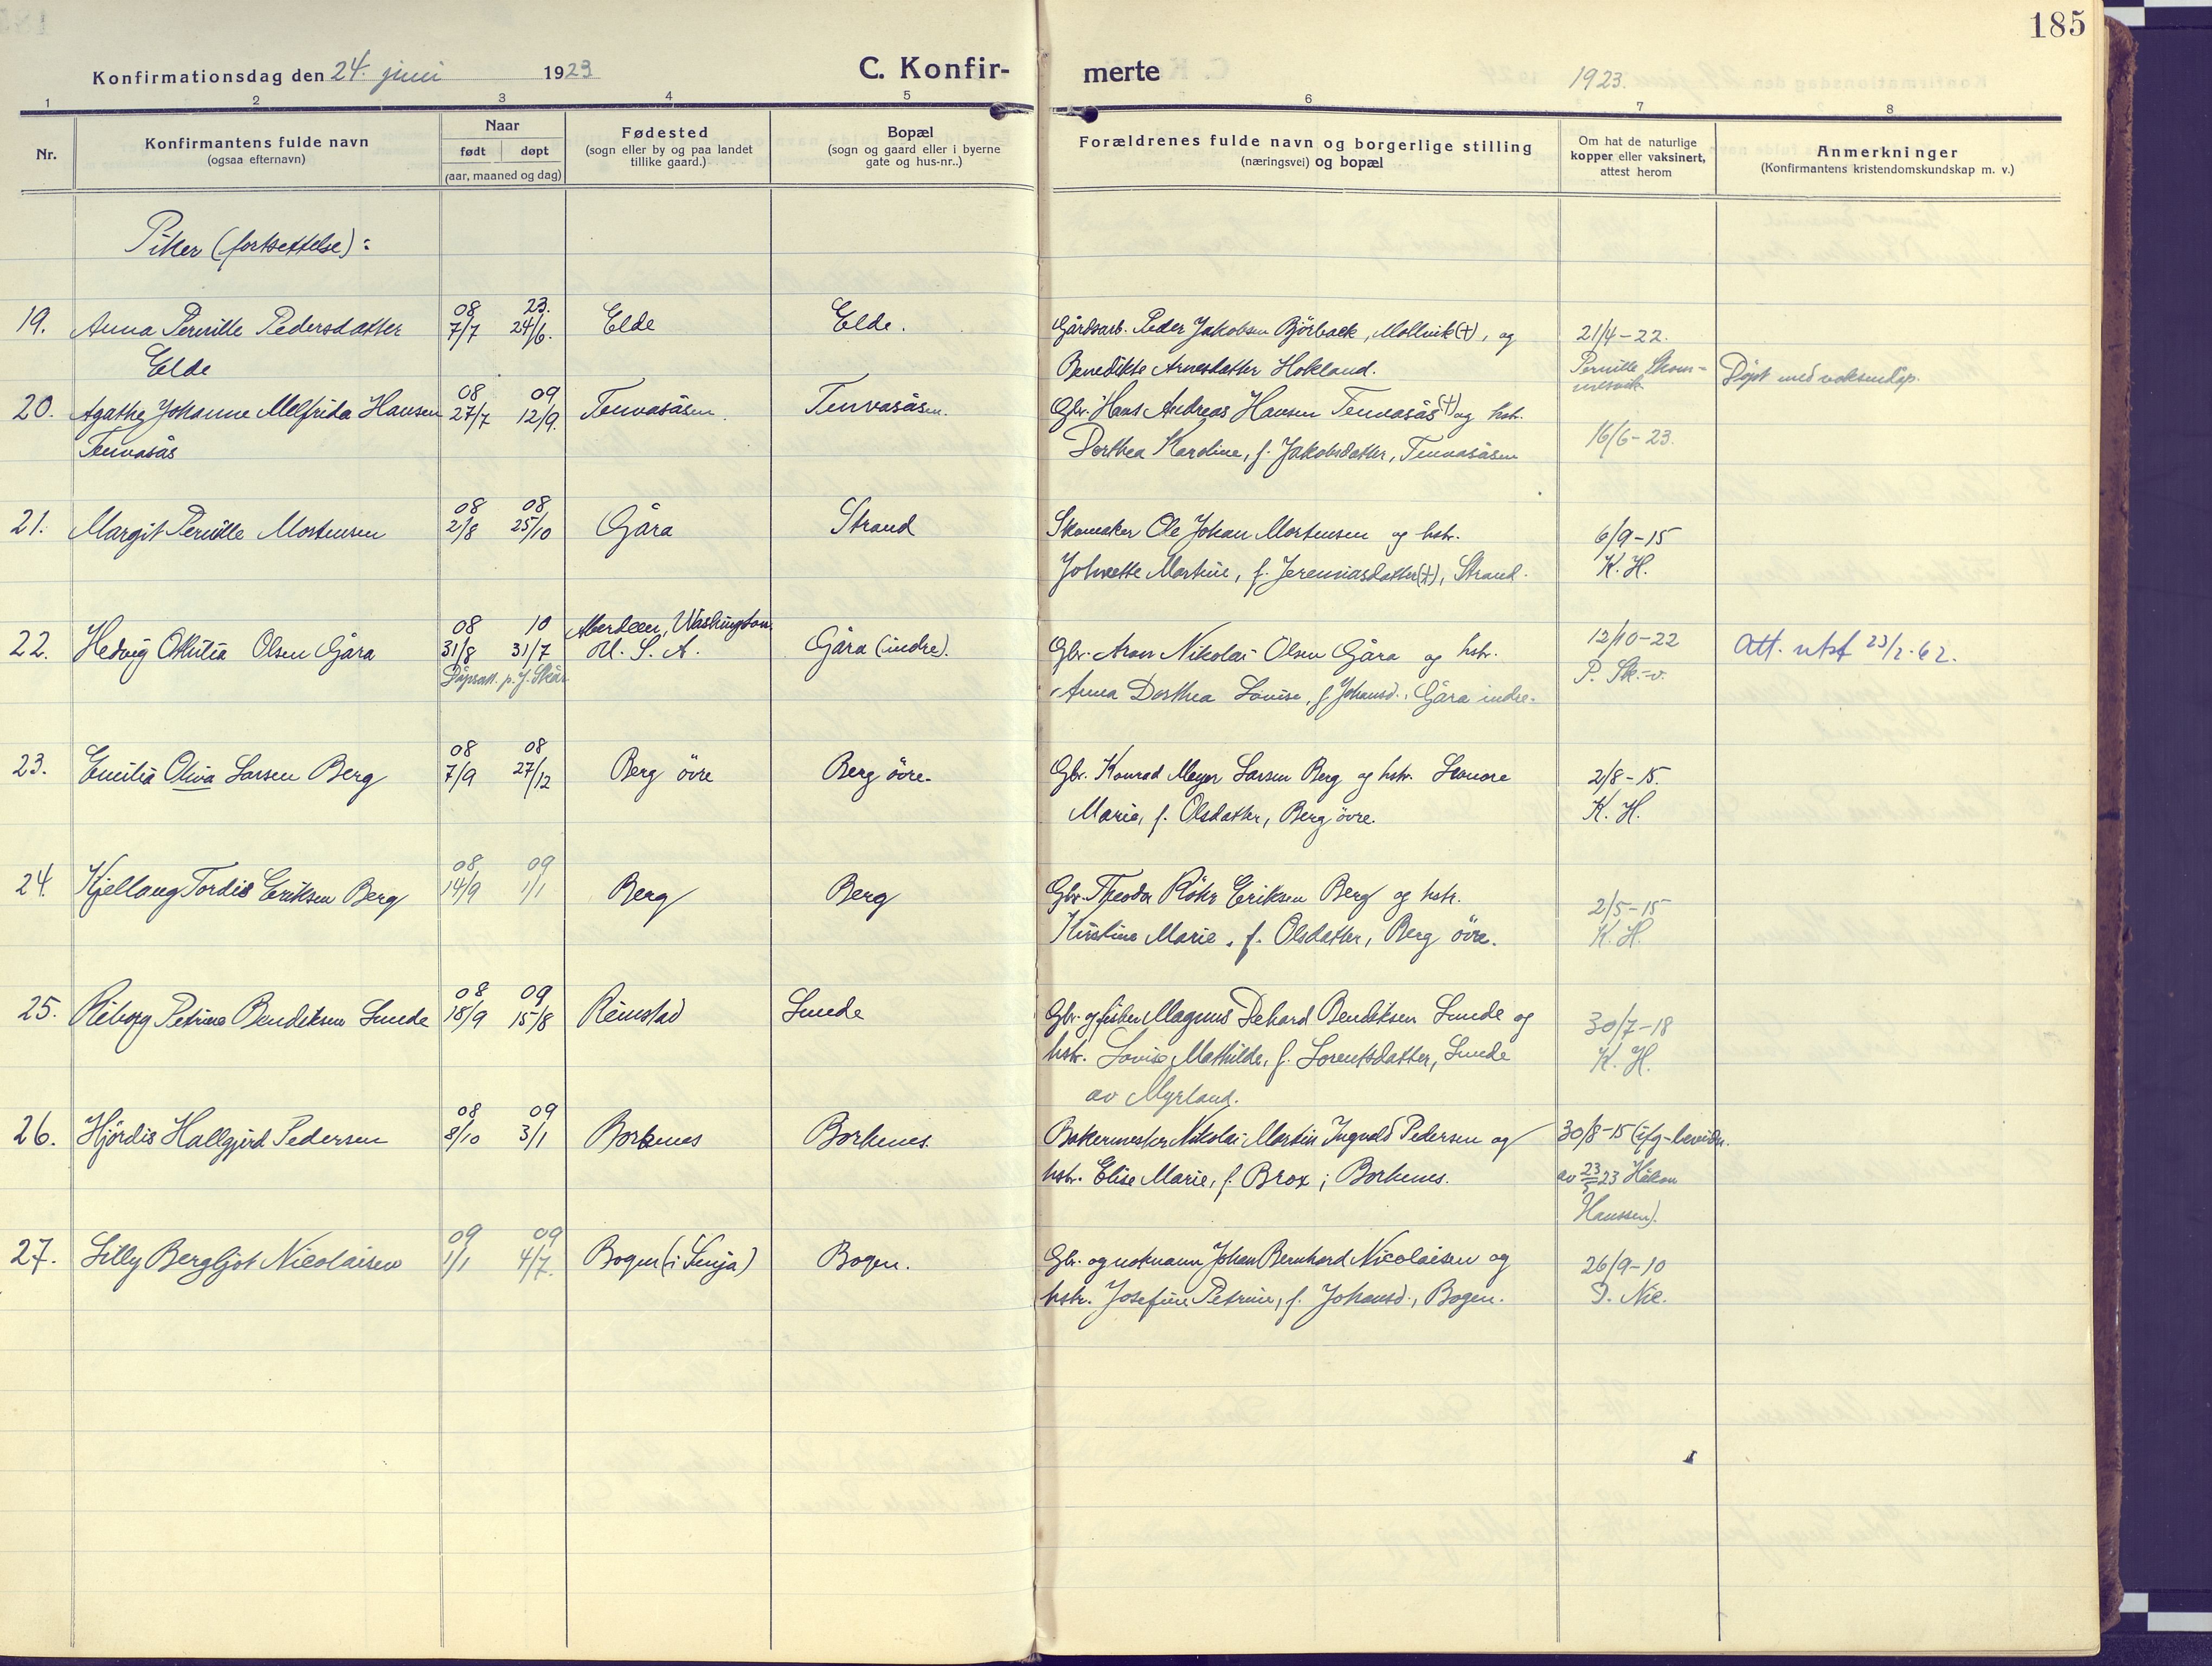 185
Konfirmationsdag den 24. juni 1923
C. Konfir-
merte
1923.
1 2 3 4 5 6 7 8
Nr.
Konfirmantens fulde navn
(ogsaa efternavn)
Naar
født døpt
(aar, maaned og dag)
Fødested
(sogn eller by og paa landet
tillike gaard.)
Bopæl
(sogn og gaard eller i byerne
gate og hus-nr..)
Forældrenes fulde navn og borgerlige stilling
(næringsvei) og bopæl
Om hat de naturlige
kopper eller vaksinert,
attest herom
Anmerkninger
(Konfirmantens kristendomskundskap m. v.)
Piker (fortsettelse):
08 23.
19. Anna Pernille Pedersdatter 7/7 24/6. Elde Elde. Gårdsarb. Peder Jakobsen Bjørbæck, Mollvik (†), og 21/4-22.
Elde Benedikte Arnesdatter Hokland. Pernille Skom-
mesvik Døpt med voksendåp.
08 09
20. Agathe Johanne Melfrida Hansen 27/7 12/9. Tenvasåsen. Tenvasåsen. Gbr. Hans Andreas Hansen Tenvasås (†) og hstr.
Tenvasås Dorthea Karoline, f. Jakobsdatter, Tenvasåsen 16/6-23.
08 08
21. Margit Pernille Mortensen 2/8 25/10 Gåra Strand Skomaker Ole Johan Mortensen og hstr. 6/9-15
Johnette Martine, f. Jeremiasdatter (†), Strand. K. H.
08 10 Aberdeen, Washington
22. Hedvig Othilia Olsen Gåra 31/8 31/7 U. S. A. Gåra (indre). Gbr. Aron Nikolai Olsen Gåra og hstr. 12/10-22 Att. utst 23/2-62.
Dåpsatt. p. J. Skår Anna Dorthea Lovise, f. Johansd., Gåra indre. P. Sk.-v.
08 08
23. Emilia Oliva Larsen Berg 7/9 27/12 Berg övre Berg övre. Gbr. Konrad Meyer Larsen Berg og hstr. Leonore 2/8-15.
Marie, f. Olsdatter, Berg övre. K. H.
08 09
24. Kjellaug Tordis Eriksen Berg 14/9 1/1 Berg Berg Gbr. Theodor Rökr Eriksen Berg og hstr. 2/5-15
Kirstine Marie, f. Olsdatter, Berg övre. K. H.
08 09
25. Riborg Petrine Bendiksen Lunde 18/9 15/8 Reinstad Lunde Gbr. og fisker Magnus Dehard Bendiksen Lunde og 30/7-18
hstr. Lovise Mathilde, f. Lorentsdatter, Lunde K. H.
av Myrland.
08 09
26. Hjördis Hallgjerd Pedersen 8/10 3/1 Borkenes Borkenes. Bakermester Nikolai Martin Ingvald Pedersen og 30/8-15 (ifg. bevidn.
hstr. Elise Marie, f. Brox; Borkenes. av 23/5 23 Håkon
Hanssen).
09 09
27. Lilly Bergljot Nicolaisen 1/1 4/7. Bogen (i Senja) Bogen. Gbr. og notmann Johan Bernhard Nicolaisen og 26/9-10
hstr. Josefine Petrine, f. Johansd., Bogen. D. Nic.